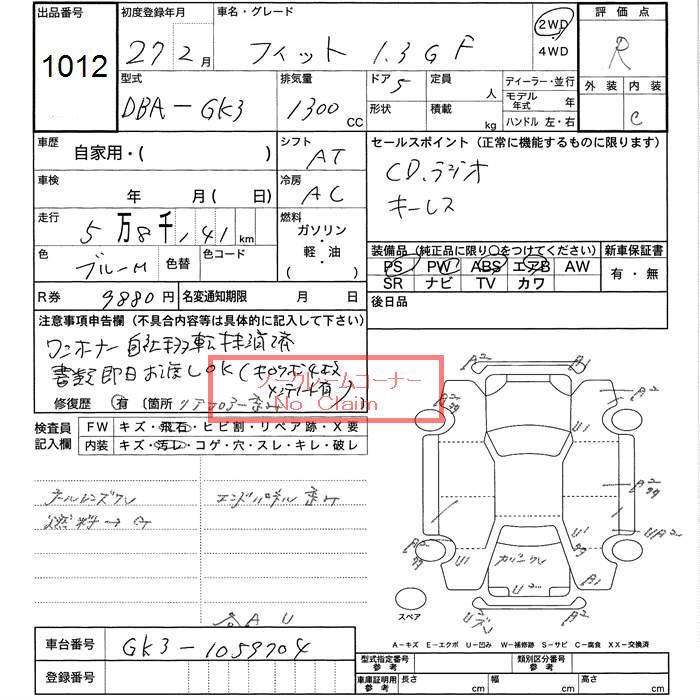 出品番号 初度登録年月 車名・グレード 評価点
1012 27 2月 フィット 1.3GF 2WD・4WD R
型式 排気量 ドア 定員 ディーラー・並行 外装 内装
DBA-GK3 1300CC 5 人 モデル年式 年 C
形状 積載 kg ハンドル 左・右
車歴 シフト セールスポイント (正常に機能するものに限ります)
自家用・( ) AT CD.ラジオ
車検 冷房 キーレス
年 月(日) AC
走行 燃料
5万8千,141km ガソリン・軽・油・( )
色 色替 色コード 装備品(純正品に限り○をつけてください) 新車保証書
ブルーM PS PW ABS エアB AW 有・無
SR ナビ TV カワ
R券 9880円 名変通知期限 月 日 後日品
注意事項申告欄 (不具合内容等は具体的に記入して下さい)
ワンオーナー 自社移転抹消済
書類即日お渡しOK(
ノークレームコーナー
No Claim
修復歴 有 〔箇所
検査員記入欄 FW キズ・飛石・ヒビ割・リペア跡・X要
内装 キズ・汚レ・コゲ・穴・スレ・キレ・破レ
エンドパネル歪ケ
A U
A2
A2
99
A2
99
UA2
U1
99
U1
A1
U2
スペア
車台番号 GK3-1059704 A-キズ E-エクボ U-凹み W-補修跡 S-サビ C-腐食 XX-交換済
登録番号 型式指定番号 参考 類別区分番号 参考
車庫証明用 参考 長さ cm 幅 cm 高さ cm